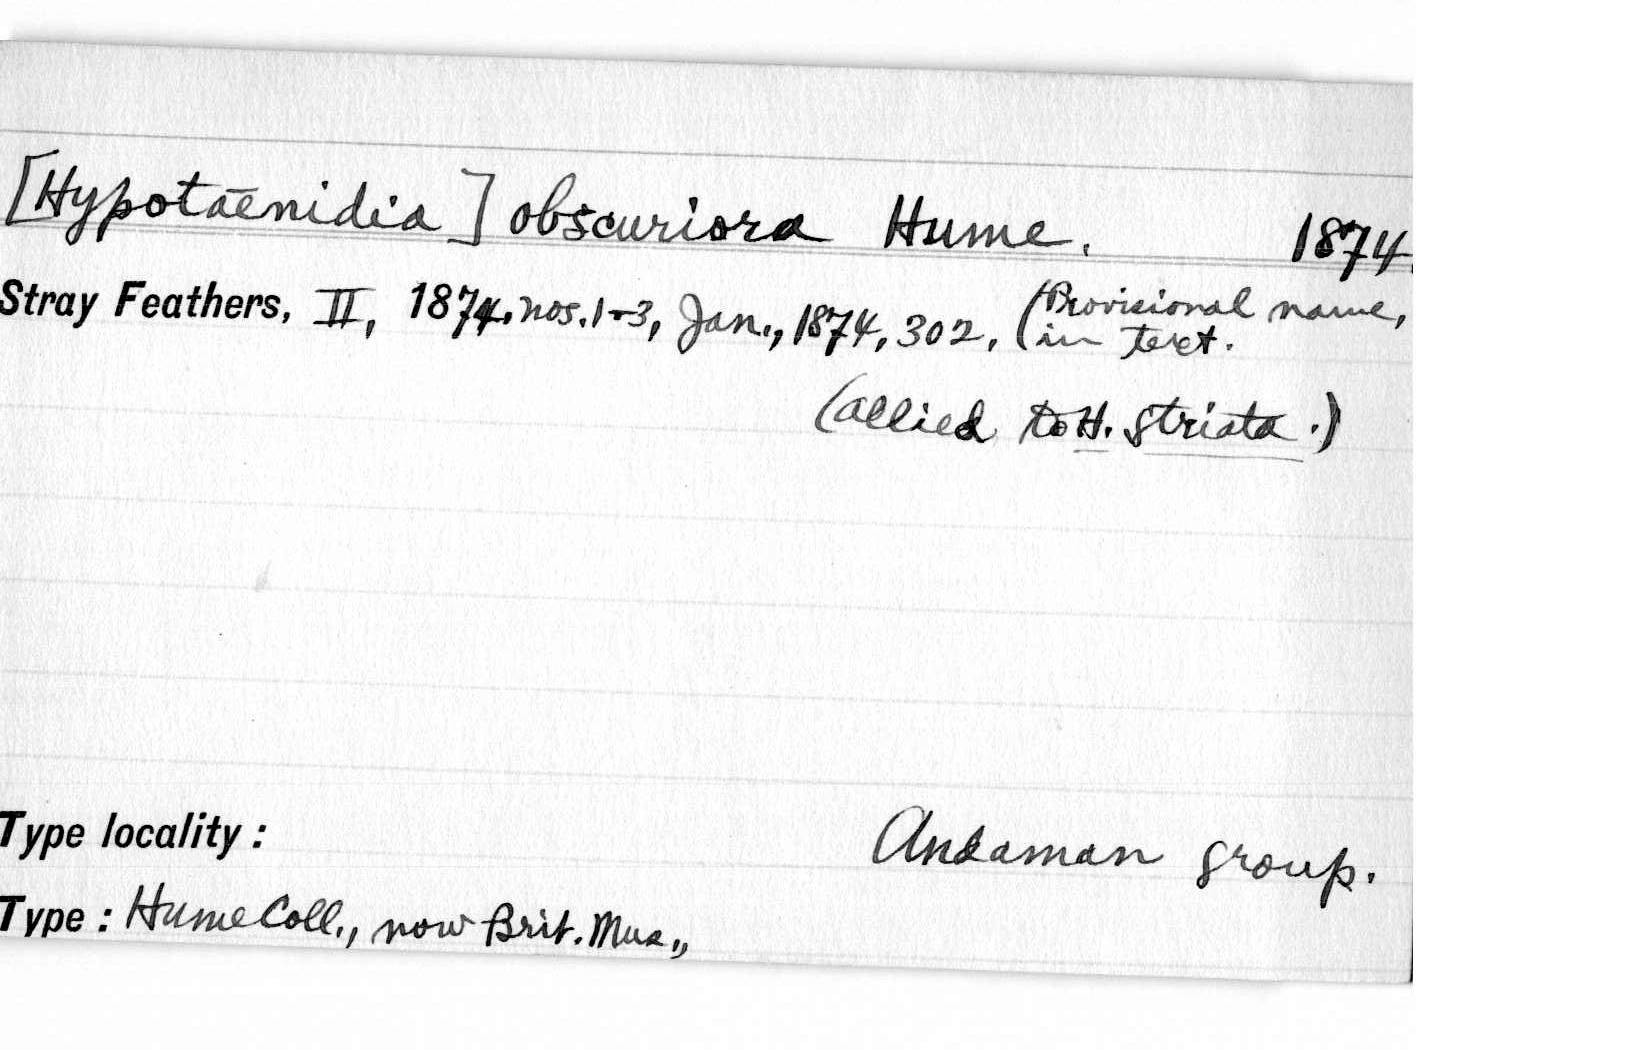 [Hypotaenidia] obscuriora Hume. 1874.
Stray Feathers, II, 1874, nos. 1-3, Jan., 1874, 302, (Provisional name,
in text.
(allied to H. striata.)
Type locality: Andaman group.
Type: Hume Coll., now Brit. Mus.,,